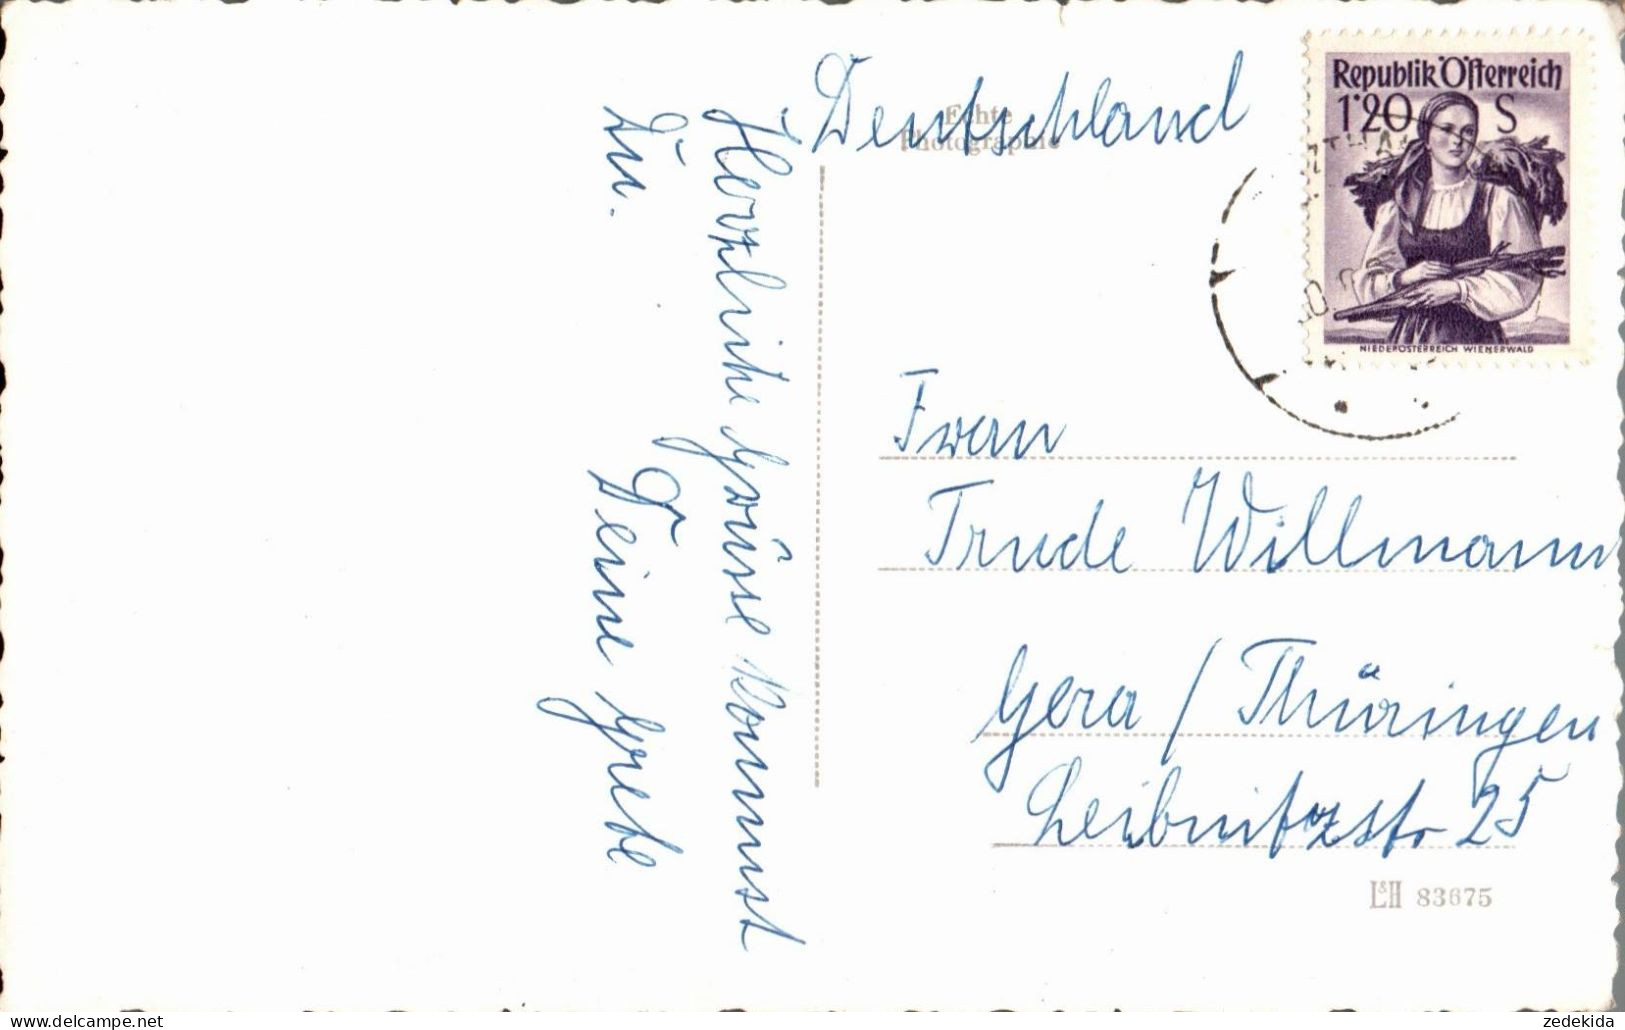 Herzliche Grüsse Kommst
Du.
Deine Grete
Deutschland
Echte
Photographie
Republik Österreich
1'20 S
NIEDERÖSTERREICH WIENERWALD
Frau
Trude Willmann
Gera / Thüringen
Leibnitzstr 25
L&H 83675
zedekida